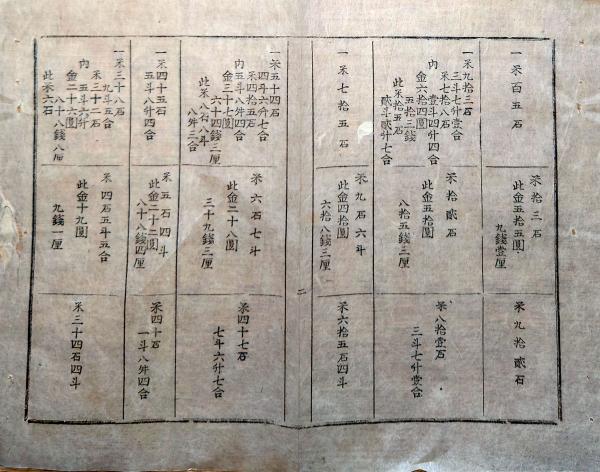 一米百五石
米拾三石
此金五拾五圓
九銭壹厘
米九拾貳石
一米九拾三石
三斗七升壹合
内
米七拾八石
壹斗四升四合
金六拾四圓
五拾三銭
此米拾五石
貳斗貳升七合
米拾貳石
此金五拾圓
八拾五銭三厘
米八拾壹石
三斗七升壹合
一米七拾五石
米九石六斗
此金四拾圓
六拾八銭三厘
米六拾五石四斗
二
一米五十四石
四斗六升七合
内
米四拾五石
五斗八升四合
金三十七圓
六十四銭三厘
此米八石八斗
八升三合
米六石七斗
此金二十八圓
三十九銭三厘
米四十七石
七斗六升七合
一米四十五石
五斗八升四合
米五石四斗
此金二十二圓
八十八銭四厘
米四十石
一斗八升四合
一米三十八石
九斗五合
内
米三十二石
五斗六升
金二十六圓
八十八銭八厘
此米六石
米四石五斗五合
此金十九圓
九銭一厘
米三十四石四斗